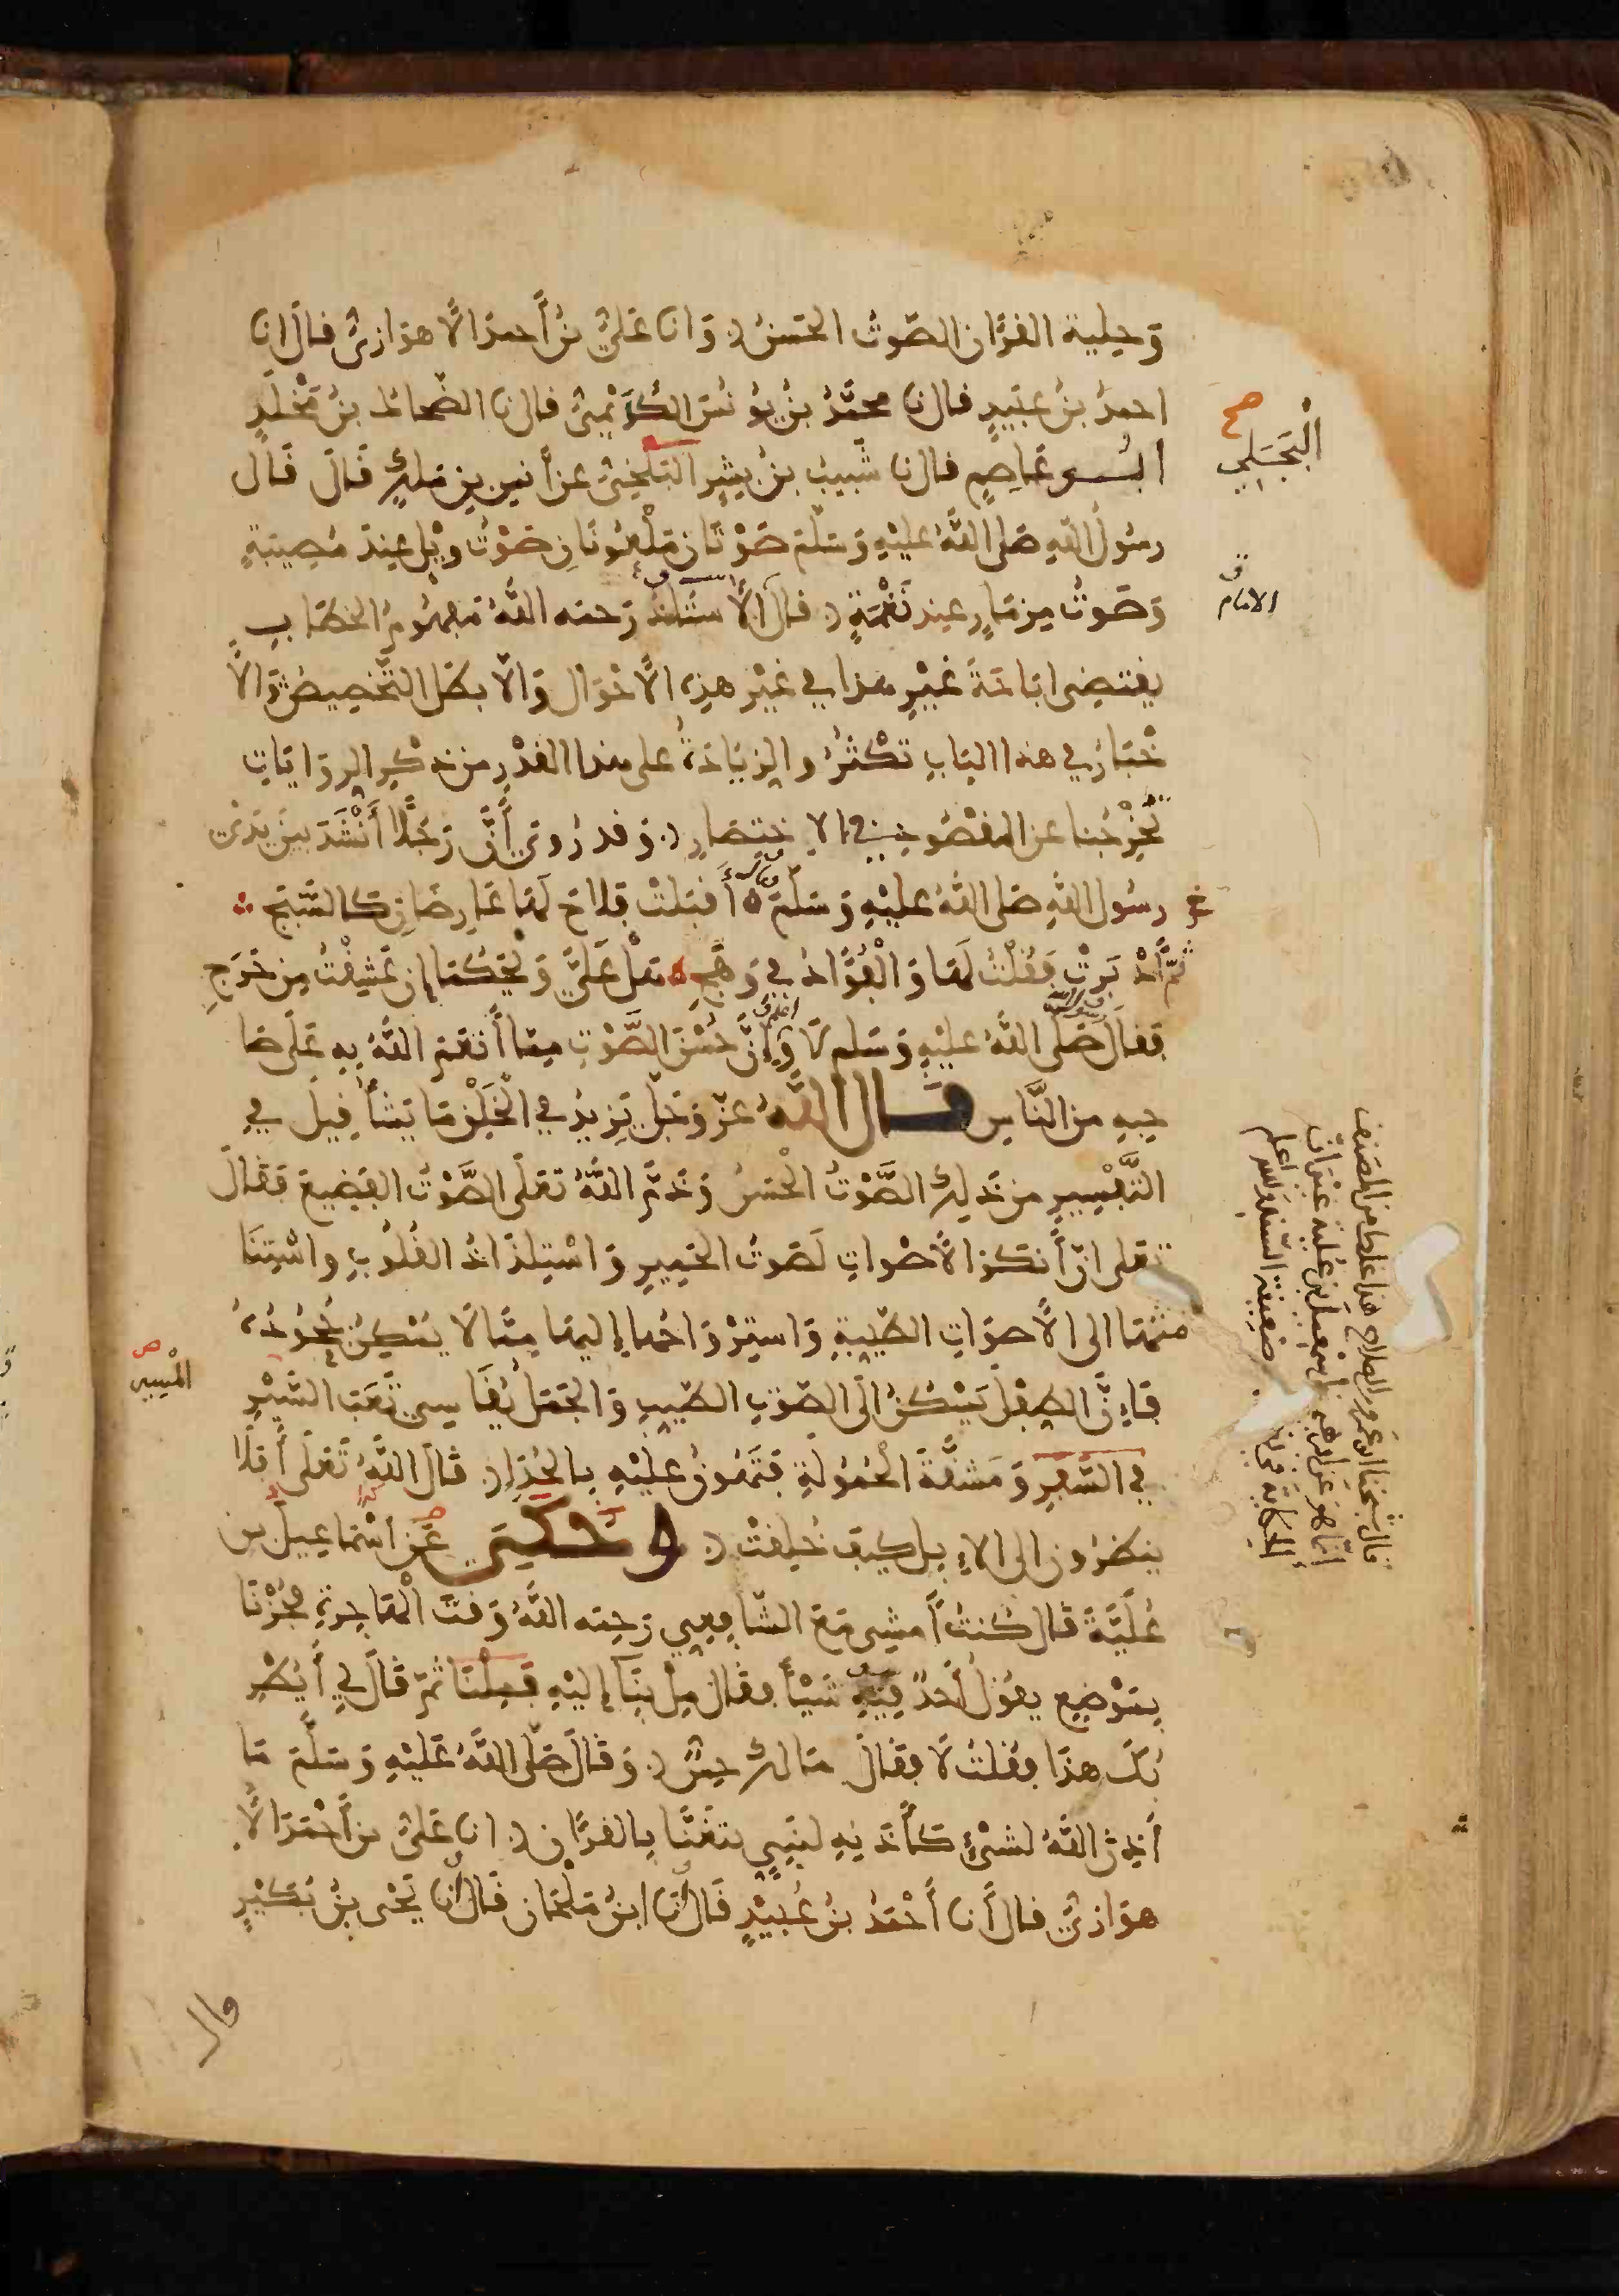 وَحِلية القرَّان الصَّوتُ الحَسَنُ وَانا عَليُّ بنُ أحمدَ الأهوَازيُّ قال انا
احمدُ بنُ عبَيدٍ قال نا محمَّدُ بنُ يُونُسَ الكُدَيْميُّ قال نا الضَّحاكُ بنُ مَخْلَدٍ
ابُـو عَاصِمٍ قال نا شَبيبُ بنُ بِشرٍ البَلْخِيُّ عن أنسِ بنِ مَلِكٍ قَالَ قَالَ
البَجَلي
رسُولُ اللهِ صَلى اللَّهُ عَليْهِ وَسَلَّمَ صَوْتَانِ مَلْعُونَانِ صَوْتُ وَيْلٍ عِندَ مُصِيبَةٍ
وَصَوتُ مِزمَارٍ عِند نَغْمَةٍ قالَ الأستاذُ رَحمه اللَّهُ مَفهُومُ الخطَابِ
الامام
يقتضِى ابَاحَةَ غَيْرِ هذا في غَيْرِ هذِه الأحْوَال وَالّا بطَل التَّخصِيصُ وَالأ
خْبَارُ في هذا البَابِ تَكْثُرُ والزيَادَةُ على هذا القَدْرِ من ذِكْرِ الروَايَاتِ
تُخْرِجُنا عن المقْصُود في الاِختِصَارِ وَقد رُوِيَ أَنَّ رَجُلًا أَنْشَدَ بَينَ يَدَيْ
رسُولِ اللهِ صَلى اللَّهُ عليْهِ وَسَلَّمَ أَقبَلتْ فلاحَ لَهَا عَارِضَانِ كالسَّبَجِ
ثُمَّ أَدْبَرَتْ فَقُلْتُ لَهَا وَالْفُؤَادُ في وَهَجِ هَلْ عَلَيَّ وَيحَكُمَا إن عَشِقْتُ مِن حَرَجِ
فَقَالَ صَلَّى اللَّهُ عليْهِ وَسَلم لَا وَإنَّ حُسْنَ الصَّوْتِ مِمَّا أنعَمَ اللَّهُ بِهِ عَلَى صَا
حِبِهِ من النَّاسِ قَـال اللَّهُ عزّ وَجَلّ يَزِيدُ في الْخَلْقِ مَا يَشَأُ قِيلَ في
التَّفْسِيرِ من ذَلِكَ الصَّوْتُ الْحَسَنُ وَذَمَّ اللَّهُ تَعَلَى الصَّوْتَ الفَضِيعَ فَقَالَ
تَعَلى انّ أَنكَرَ الأَصْواتِ لَصَوتُ الحَمِيرِ وَاسْتِلذَاذُ القُلُوبِ واشْتِيَا
قُهَا الى الأَصوَاتِ الطَّيِّبةِ وَاستِرْوَاحُها إليهَا مِمَّا لَا يُمْكِنُ جُحُودُهُ
فَإِنَّ الطِفْلَ يَسْكُنُ الَى الصَّوْتِ الطَّيِّبِ وَالجَمَلُ يُقَاسِي تَعَبَ السَّيْرِ
المَسير
في السَّفَرِ وَمَشَقَّةَ الْحُمُولَةِ فَتَهُونُ عليْهِ بِالحُدَاءِ قَالَ اللَّهُ تَعَلَى أَفَلَا
ينظرُونَ الى الاِبِلِ كَيفَ خُلِقتْ وَحَكَى عَن اسْمَاعِيلَ بن
عُلَيَّةَ قال كُنتُ أَمشِي مَعَ الشَّافِعِي رَحِمَه اللَّهُ وَقتَ الْهَاجِرَةِ فَجُزْنَا
بِمَوْضِعٍ يقُولُ أَحَدٌ فِيهِ شَيْأً فقَال مِلْ بِنَا إليْهِ فَمِلْنَا ثُمَّ قَالَ لي أَيُطْرِ
بُكَ هذَا فقلتُ لَا فقَالَ مَا لَكَ حِسٌّ وَقَالَ صَلَّى اللَّهُ عَلَيْهِ وَسَلَّمَ مَا
أَذِنَ اللَّهُ لشَيْءٍ كَأَذَنِهِ لنَبِيٍ يتغَنَّا بالقرَّانِ انا عَليُّ بنُ أَحْمَدَ الأَ
هوَازيُّ قال أَنا أَحْمَدُ بنُ عُبَيْدٍ قَال نَا ابنُ مَلْحَان قَال نا يَحْيى بنُ بُكَيْرٍ
قال
قال شيخنا ابو عَمرو بن الصلاح هذا غلط من المصنف
انّما هوَ عن ابرهيم بن اسْمعيل بن عُليّة غيْرَ انّ
الحكاية ضعيفة السند والله اعلم